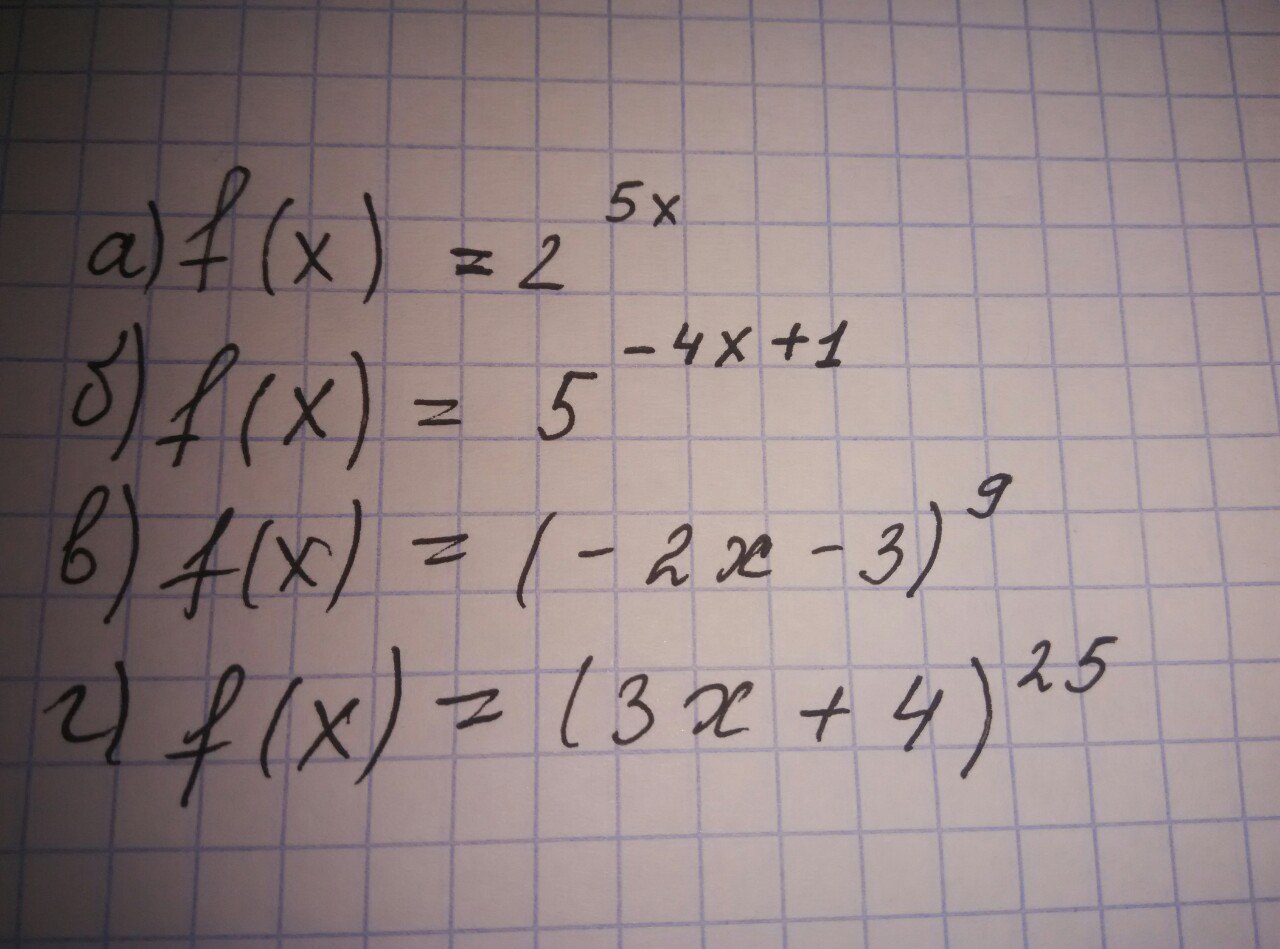 а) f(x) = 2^{5x}
б) f(x) = 5^{-4x+1}
в) f(x) = (-2x-3)^9
г) f(x) = (3x+4)^{25}